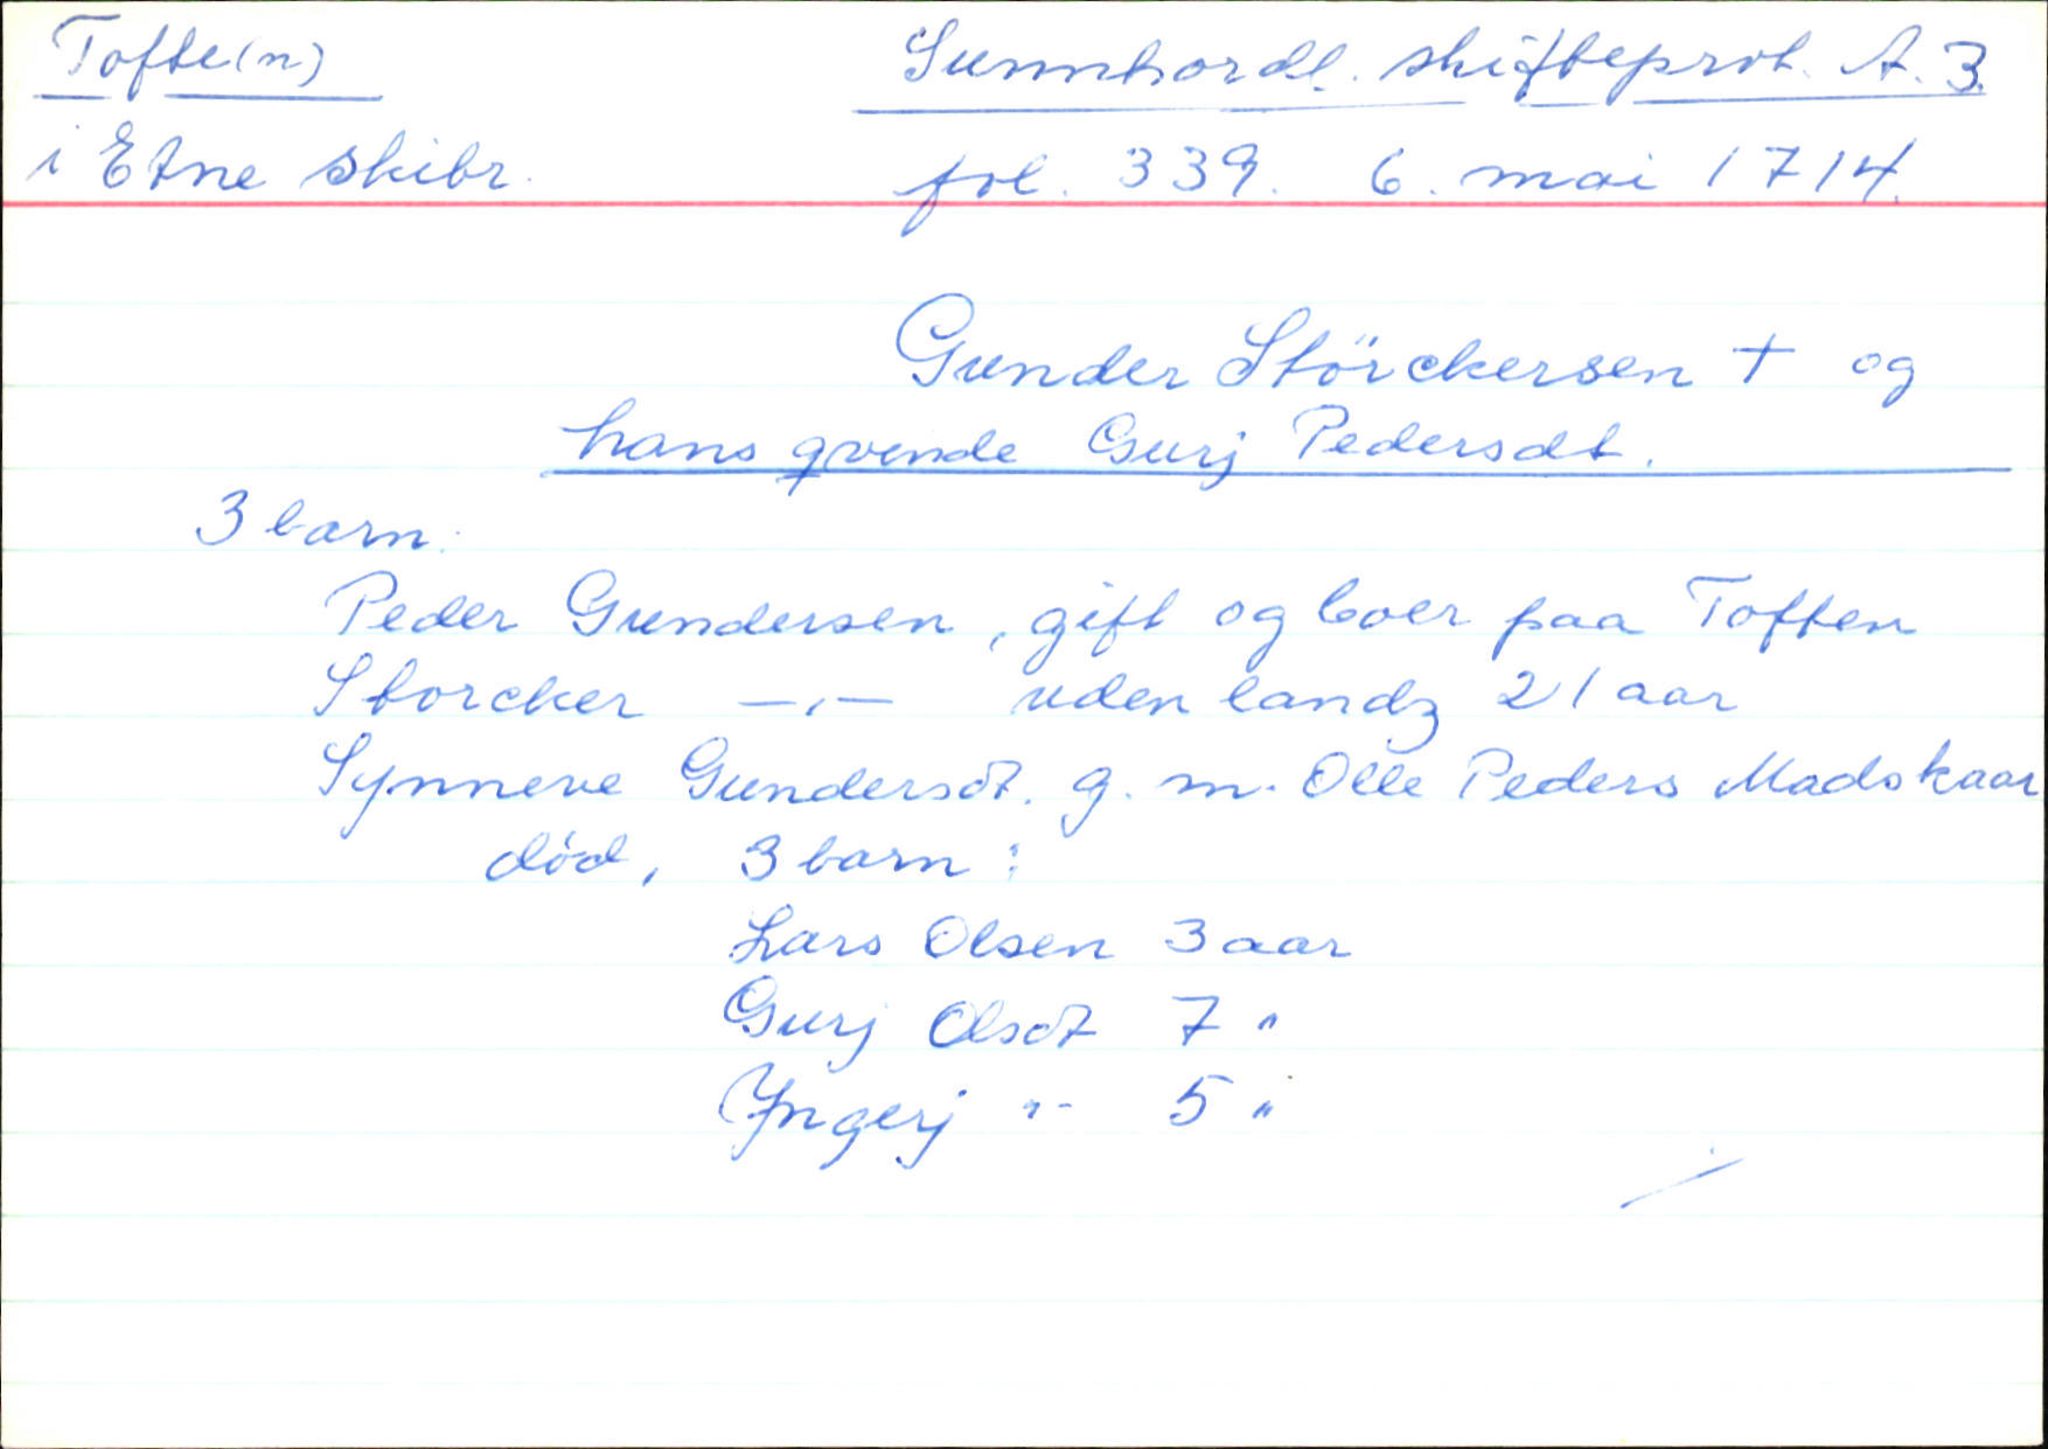 Tofte(n)
Sunnhordl. skifteprot. A. 3.
i Etne skibr.
fol. 339. 6. mai 1714.
Gunder Störckersen + og
hans qvende Gurj Pedersdt.
3 barn:
Peder Gundersen, gift og boer paa Toften
Storcker —„— uden landz 21 aar
Synneve Gundersdt. g. m. Olle Peders Madskaar
död, 3 barn:
Lars Olsen 3 aar
Gurj Olsdt 7 "
Yngerj "- 5 "